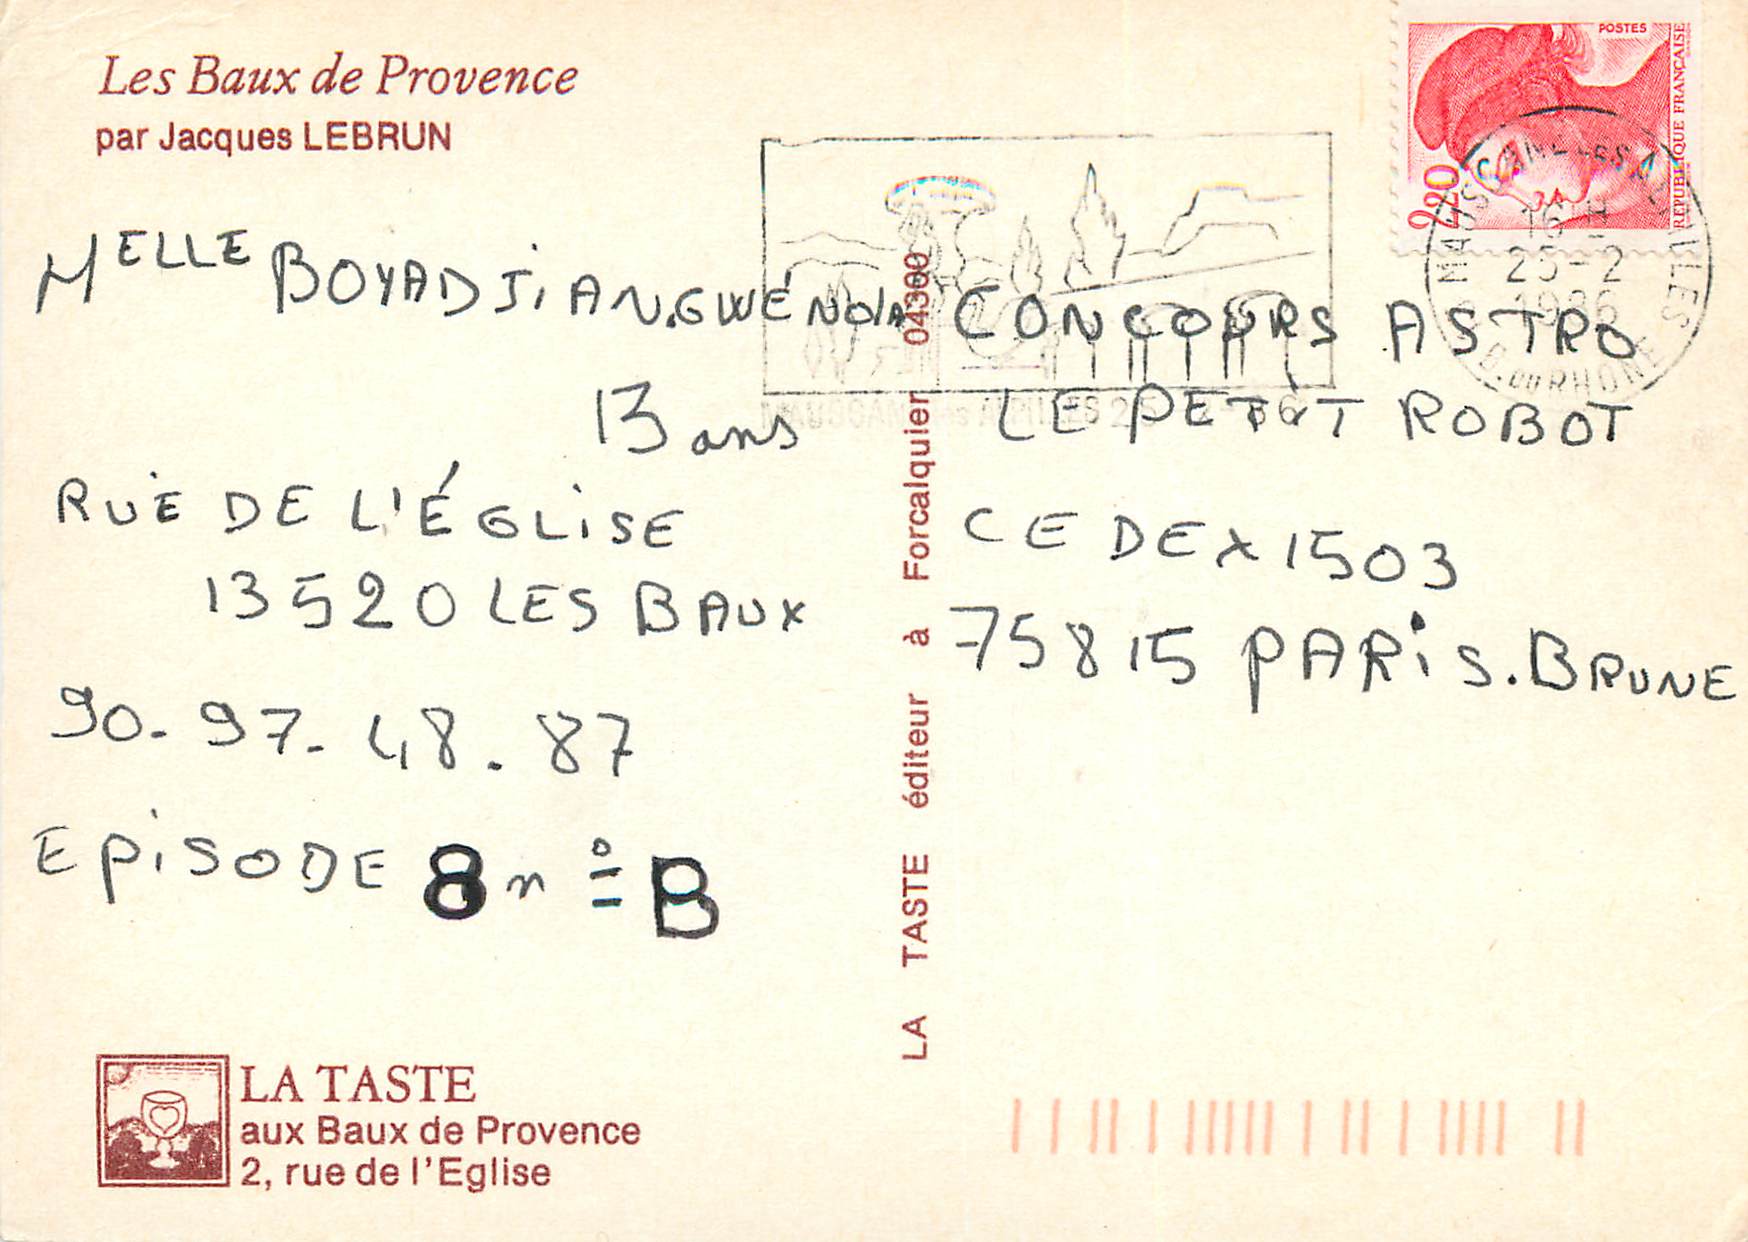 Les Baux de Provence
par Jacques LEBRUN
MELLE BOYADJiAN.GWÉNOLA
13 ans
RUE DE L'ÉGLiSE
13520 LES BAUX
90-97-48.87
EPiSODE 8 n° B
LA TASTE
aux Baux de Provence
2, rue de l'Eglise
LA TASTE éditeur à Forcalquier 04300
POSTES
REPUBLIQUE FRANÇAISE
2,20
16 H
25-2
1986
B. DU RHONE
CONCOURS ASTRO
LE PETiT ROBOT
CEDEX 1503
75815 PARiS.BRUNE